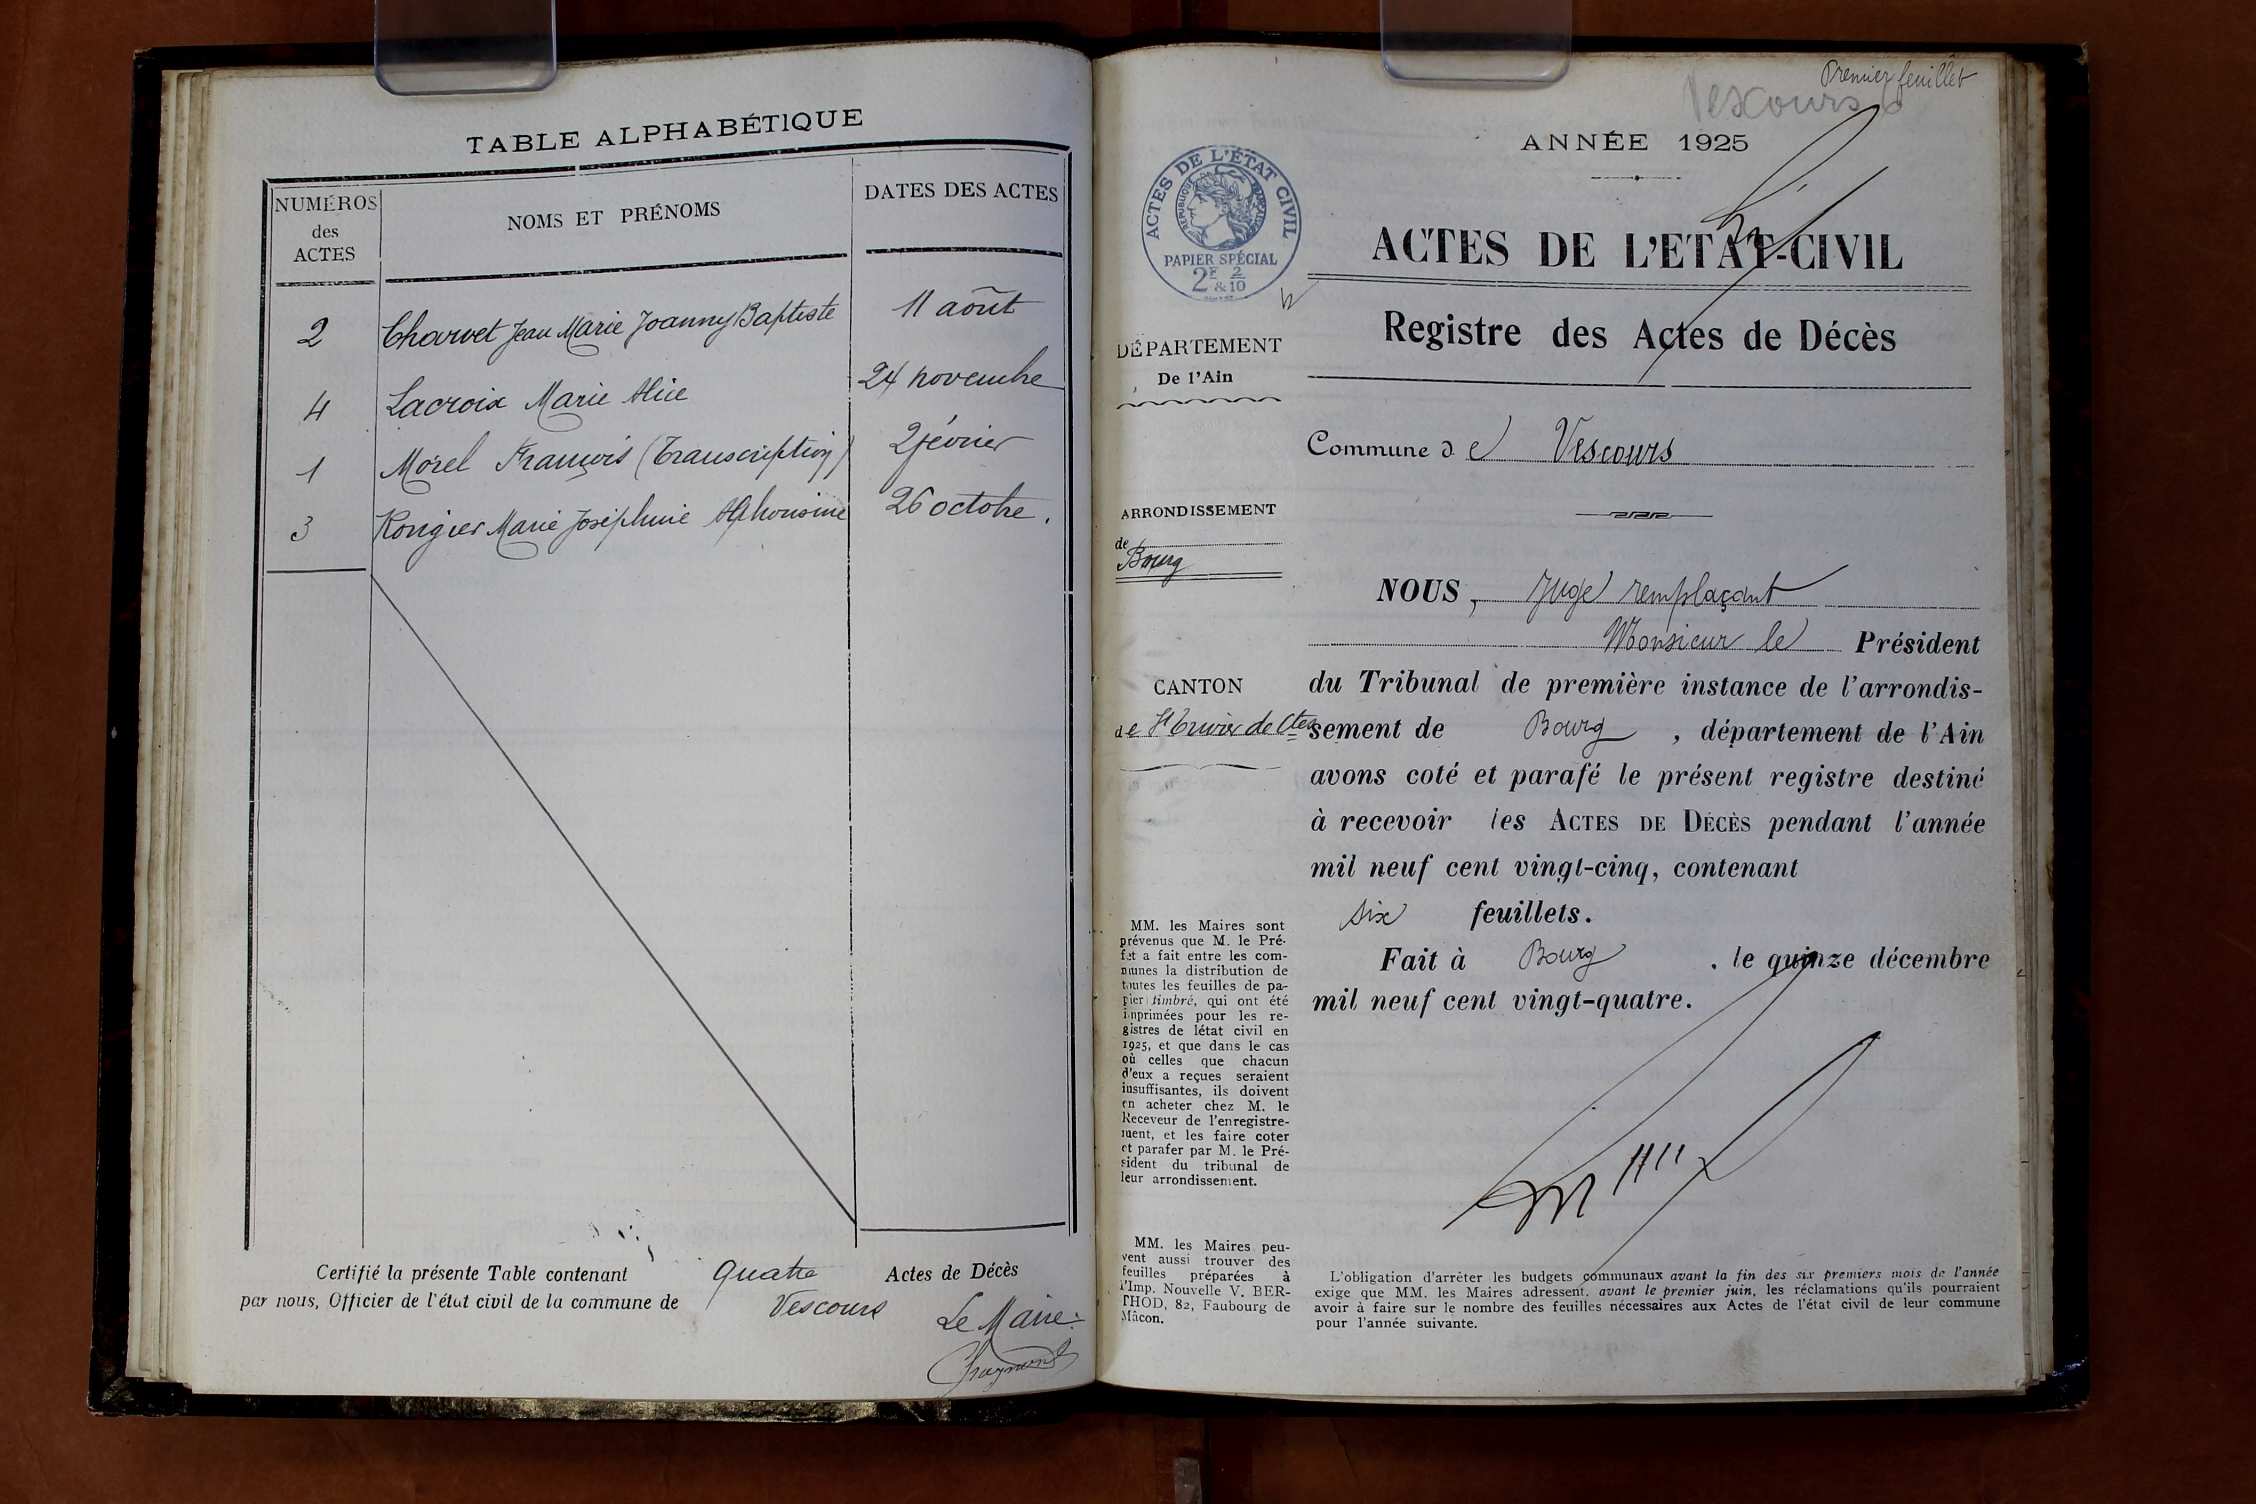 TABLE ALPHABÉTIQUE
NUMÉROS
des
ACTES
NOMS ET PRÉNOMS
DATES DES ACTES
2 Charvet Jean Marie Joanny Baptiste 11 août
4 Lacroix Marie Alice 24 novembre
1 Morel François (Transcription) 2 février
3 Rongier Marie Joséphine Alphonsine 26 octobre.
Certifié la présente Table contenant quatre Actes de Décès
par nous, Officier de l'état civil de la commune de Vescours
Le Maire
Premier feuillet
Vescours 6
ANNÉE 1925
ACTES DE L'ÉTAT CIVIL
RÉPUBLIQUE FRANÇAISE
PAPIER SPÉCIAL
2F & 2/10
ACTES DE L'ETAT-CIVIL
Registre des Actes de Décès
DÉPARTEMENT
De l'Ain
Commune de Vescours
ARRONDISSEMENT
de
Bourg
CANTON
de St Trivier de Ctes
NOUS, Juge remplaçant
Monsieur le Président
du Tribunal de première instance de l'arrondis-
sement de Bourg, département de l'Ain
avons coté et parafé le présent registre destiné
à recevoir les ACTES DE DÉCÈS pendant l'année
mil neuf cent vingt-cinq, contenant
six feuillets.
Fait à Bourg, le quinze décembre
mil neuf cent vingt-quatre.
MM. les Maires sont
prévenus que M. le Pré-
fet a fait entre les com-
munes la distribution de
toutes les feuilles de pa-
pier timbré, qui ont été
imprimées pour les re-
gistres de létat civil en
1925, et que dans le cas
où celles que chacun
d'eux a reçues seraient
insuffisantes, ils doivent
en acheter chez M. le
Receveur de l'enregistre-
ment, et les faire coter
et parafer par M. le Pré-
sident du tribunal de
leur arrondissement.
MM. les Maires peu-
vent aussi trouver des
feuilles préparées à
l'Imp. Nouvelle V. BER-
THOD, 82, Faubourg de
Mâcon.
L'obligation d'arrêter les budgets communaux avant la fin des six premiers mois de l'année
exige que MM. les Maires adressent, avant le premier juin, les réclamations qu'ils pourraient
avoir à faire sur le nombre des feuilles nécessaires aux Actes de l'état civil de leur commune
pour l'année suivante.